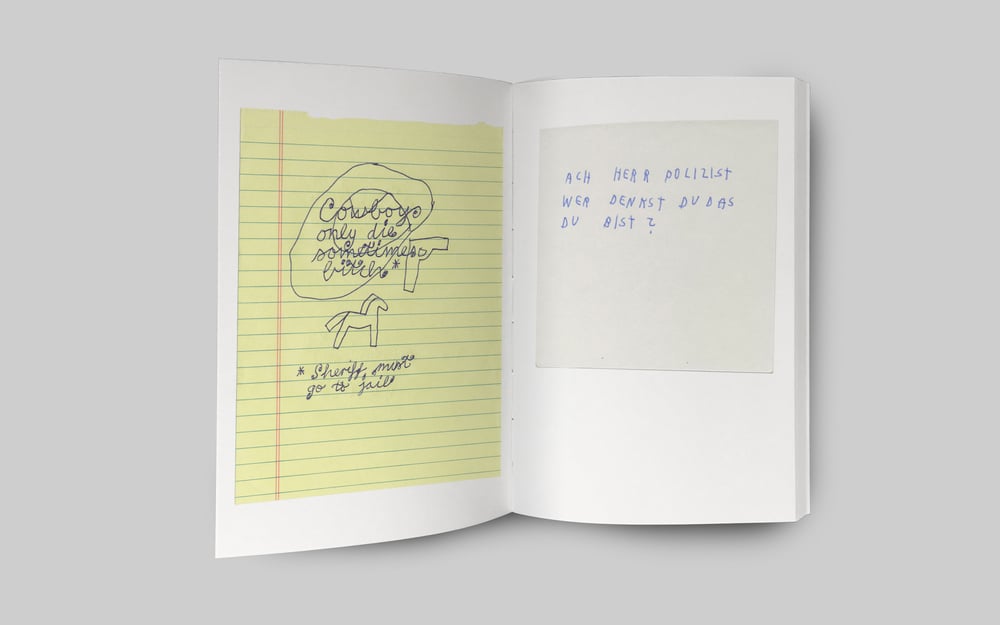 Cowboys
only die
sometimes
bitch*
* Sheriff must
go to jail
ACH HERR POLIZIST
WER DENKST DU DAS
DU BIST ?